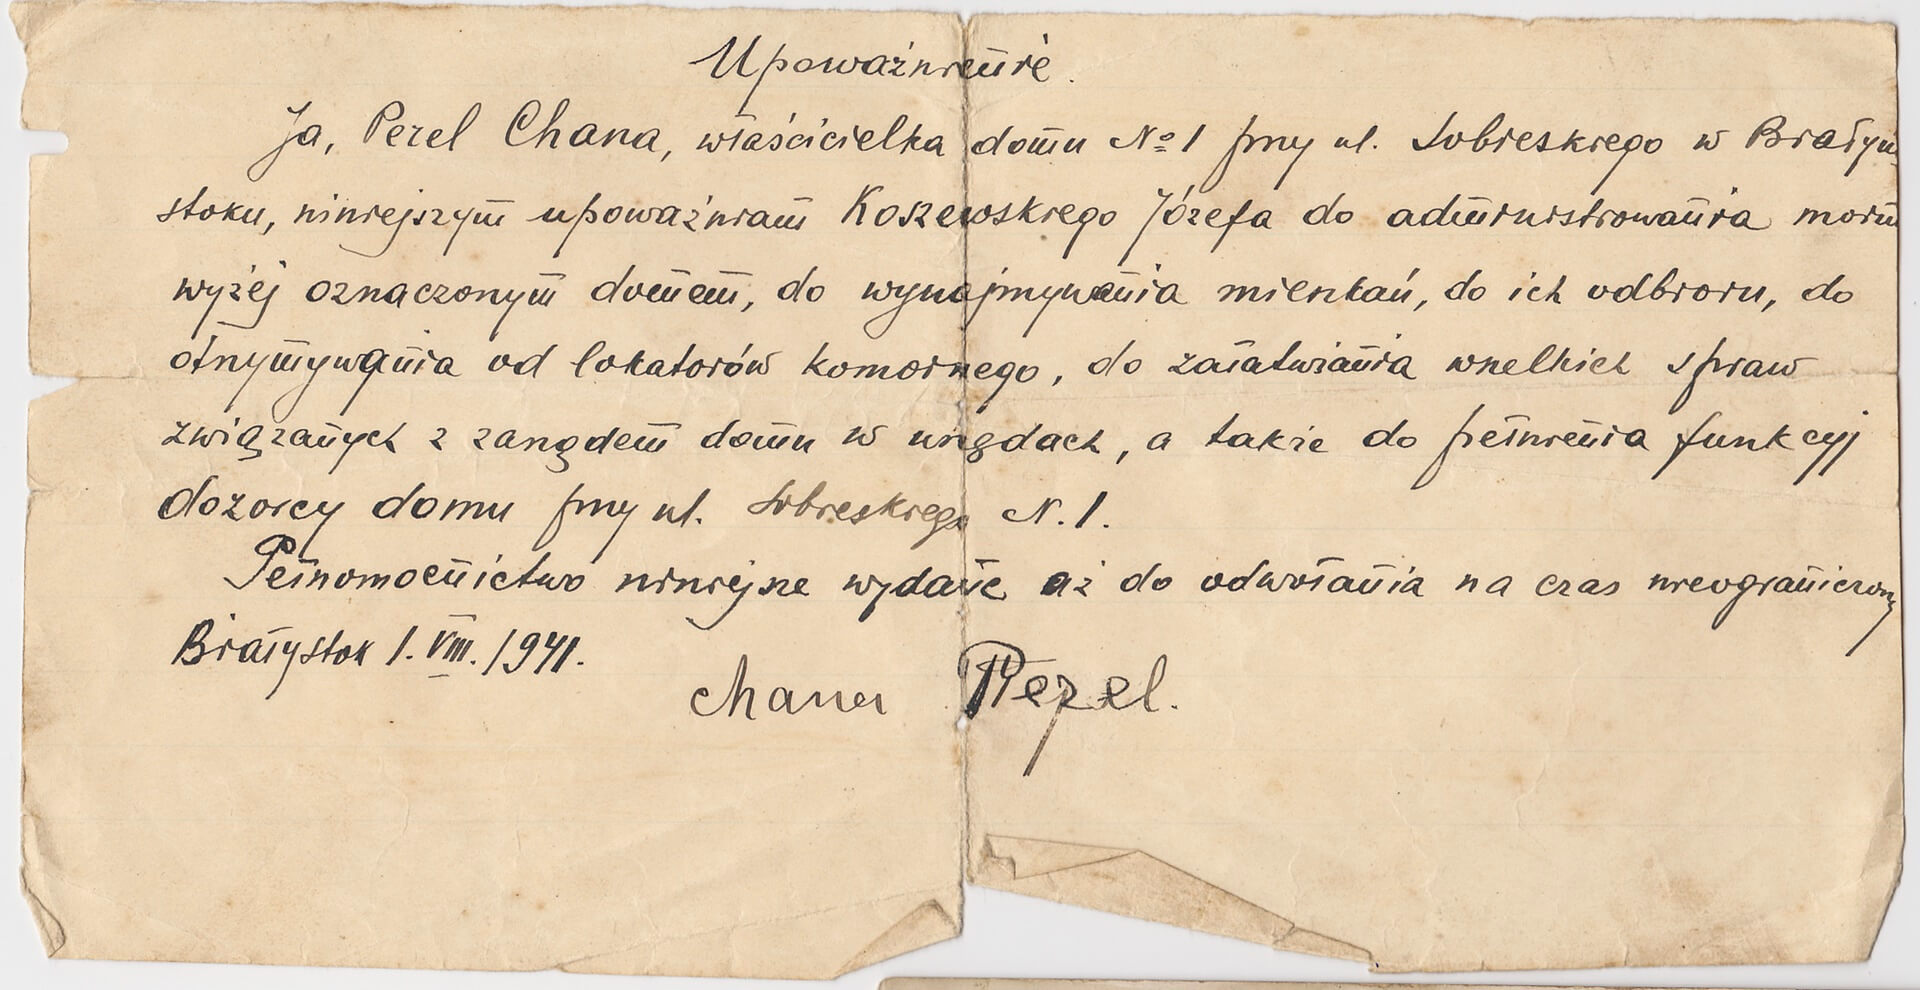 Upoważnienie.
Ja, Perel Chana, właścicielka domu № 1 przy ul. Sobieskiego w Białym-
stoku, niniejszym upoważniam Koszewskiego Józefa do administrowania moim
wyżej oznaczonym domem, do wynajmywania mieszkań, do ich odbioru, do
otrzymywania od lokatorów komornego, do załatwiania wszelkich spraw
związanych z zarządem domu w urzędach, a także do pełnienia funkcyj
dozorcy domu przy ul. Sobieskiego N. 1.
Pełnomocnictwo niniejsze wydaję aż do odwołania na czas nieograniczony
Białystok 1. VIII. 1941.
Chana Perel.